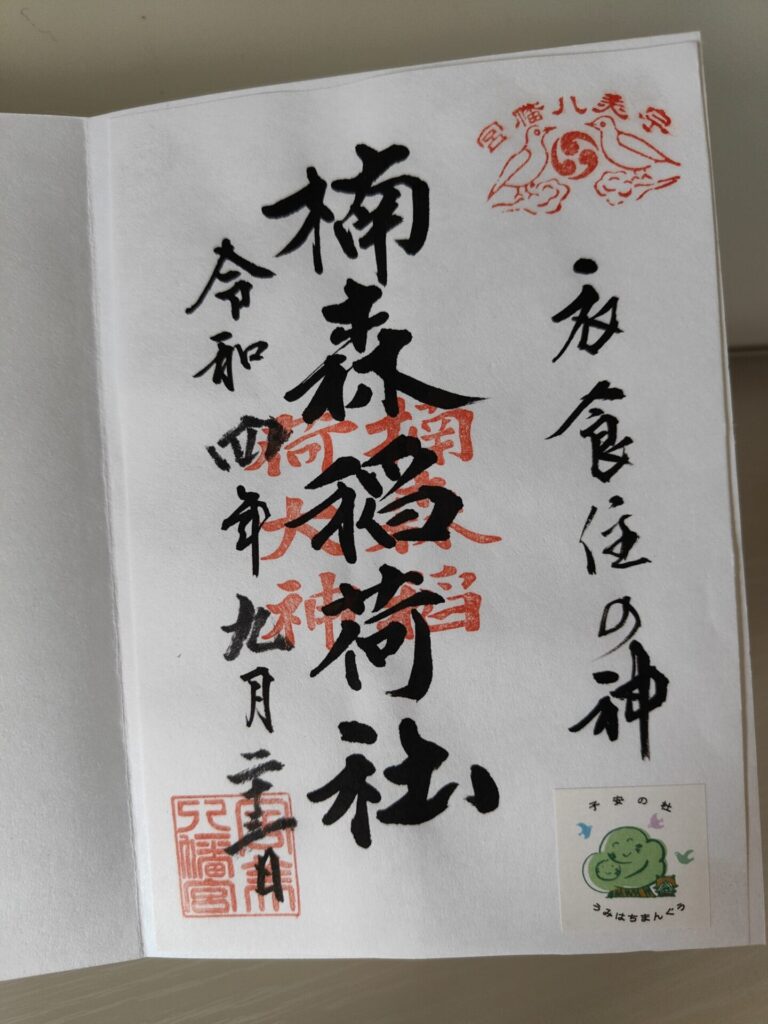 宇美八幡宮
衣食住の神
楠森稲荷社
楠森稲
荷大神
令和四年九月二十三日
宇美
八幡宮
子安の杜
うみはちまんぐう